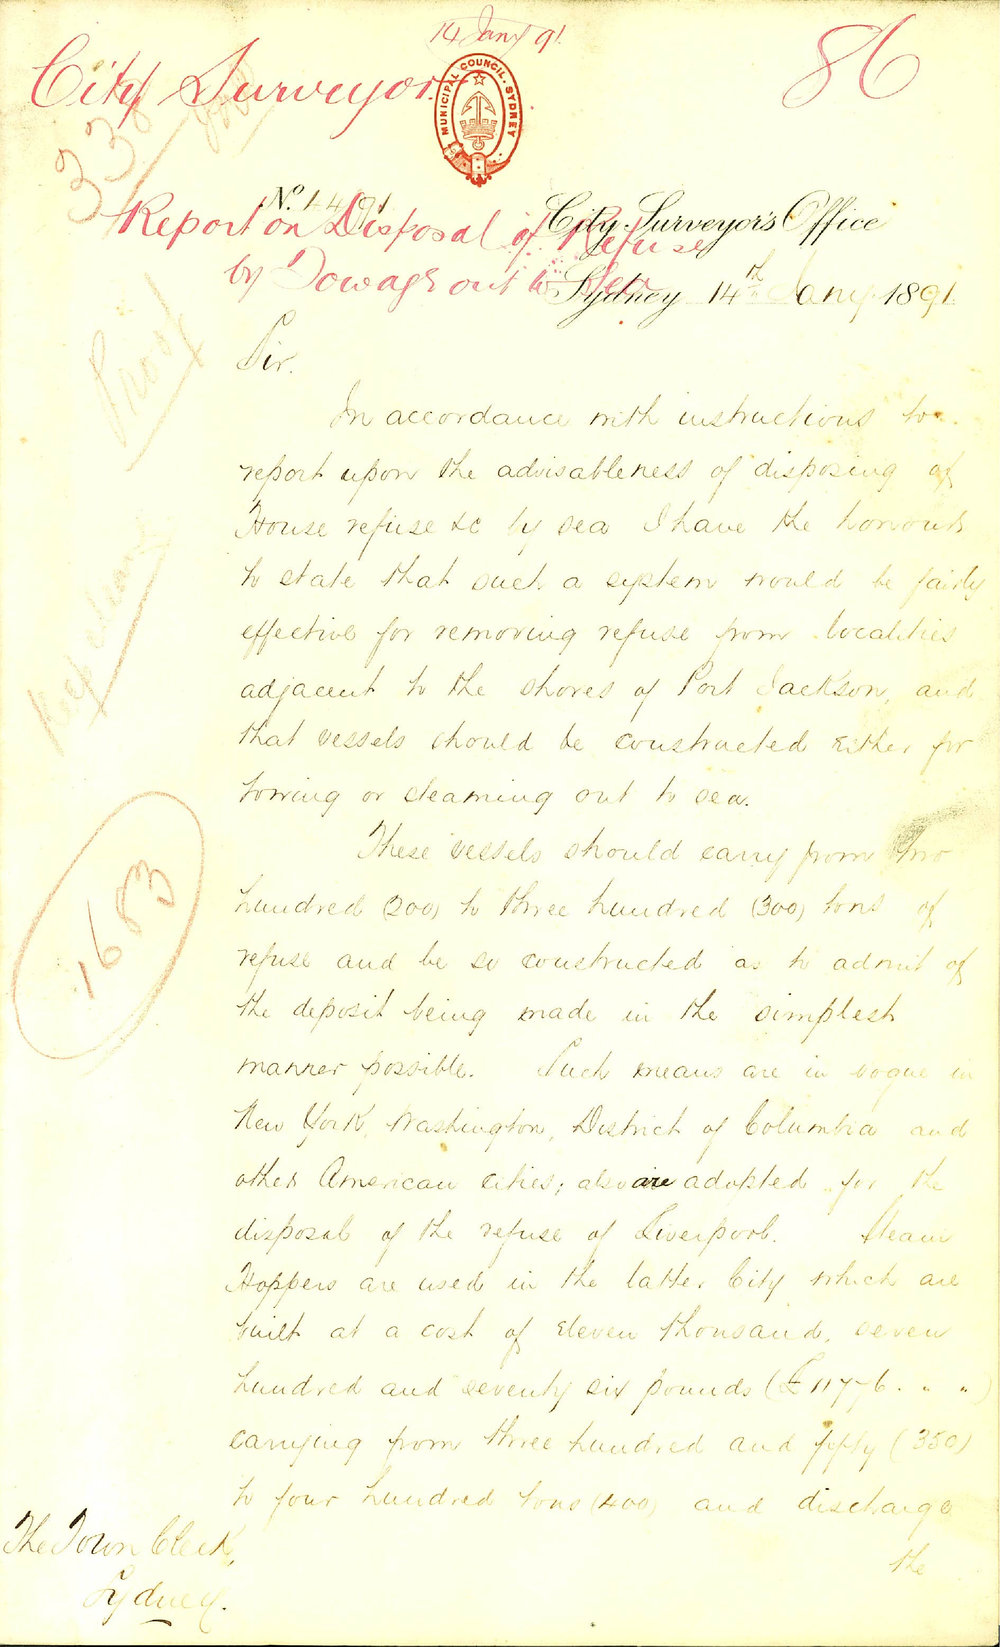 14 Jany 91
City Surveyor
86
MUNICIPAL COUNCIL · SYDNEY
338
No. 14/91
City Surveyor's Office
Report on Disposal of Refuse
by Towage out to Sea
Sydney 14th Jany 1891
Sir.
In accordance with instructions to
report upon the advisableness of disposing of
House refuse &c by sea I have the honour
to state that such a system would be fairly
effective for removing refuse from localities
adjacent to the shores of Port Jackson, and
that vessels should be constructed either for
towing or steaming out to sea.
These vessels should carry from two
hundred (200) to three hundred (300) tons of
refuse and be so constructed as to admit of
the deposit being made in the simplest
manner possible. Such means are in vogue in
New York, Washington, District of Columbia and
other American cities; also are adopted for the
disposal of the refuse of Liverpool. Steam
Hoppers are used in the latter City which are
built at a cost of eleven thousand, seven
hundred and seventy six pounds (£11776. " ")
carrying from three hundred and fifty (350)
to four hundred tons (400) and discharge
the
1683
The Town Clerk,
Sydney.